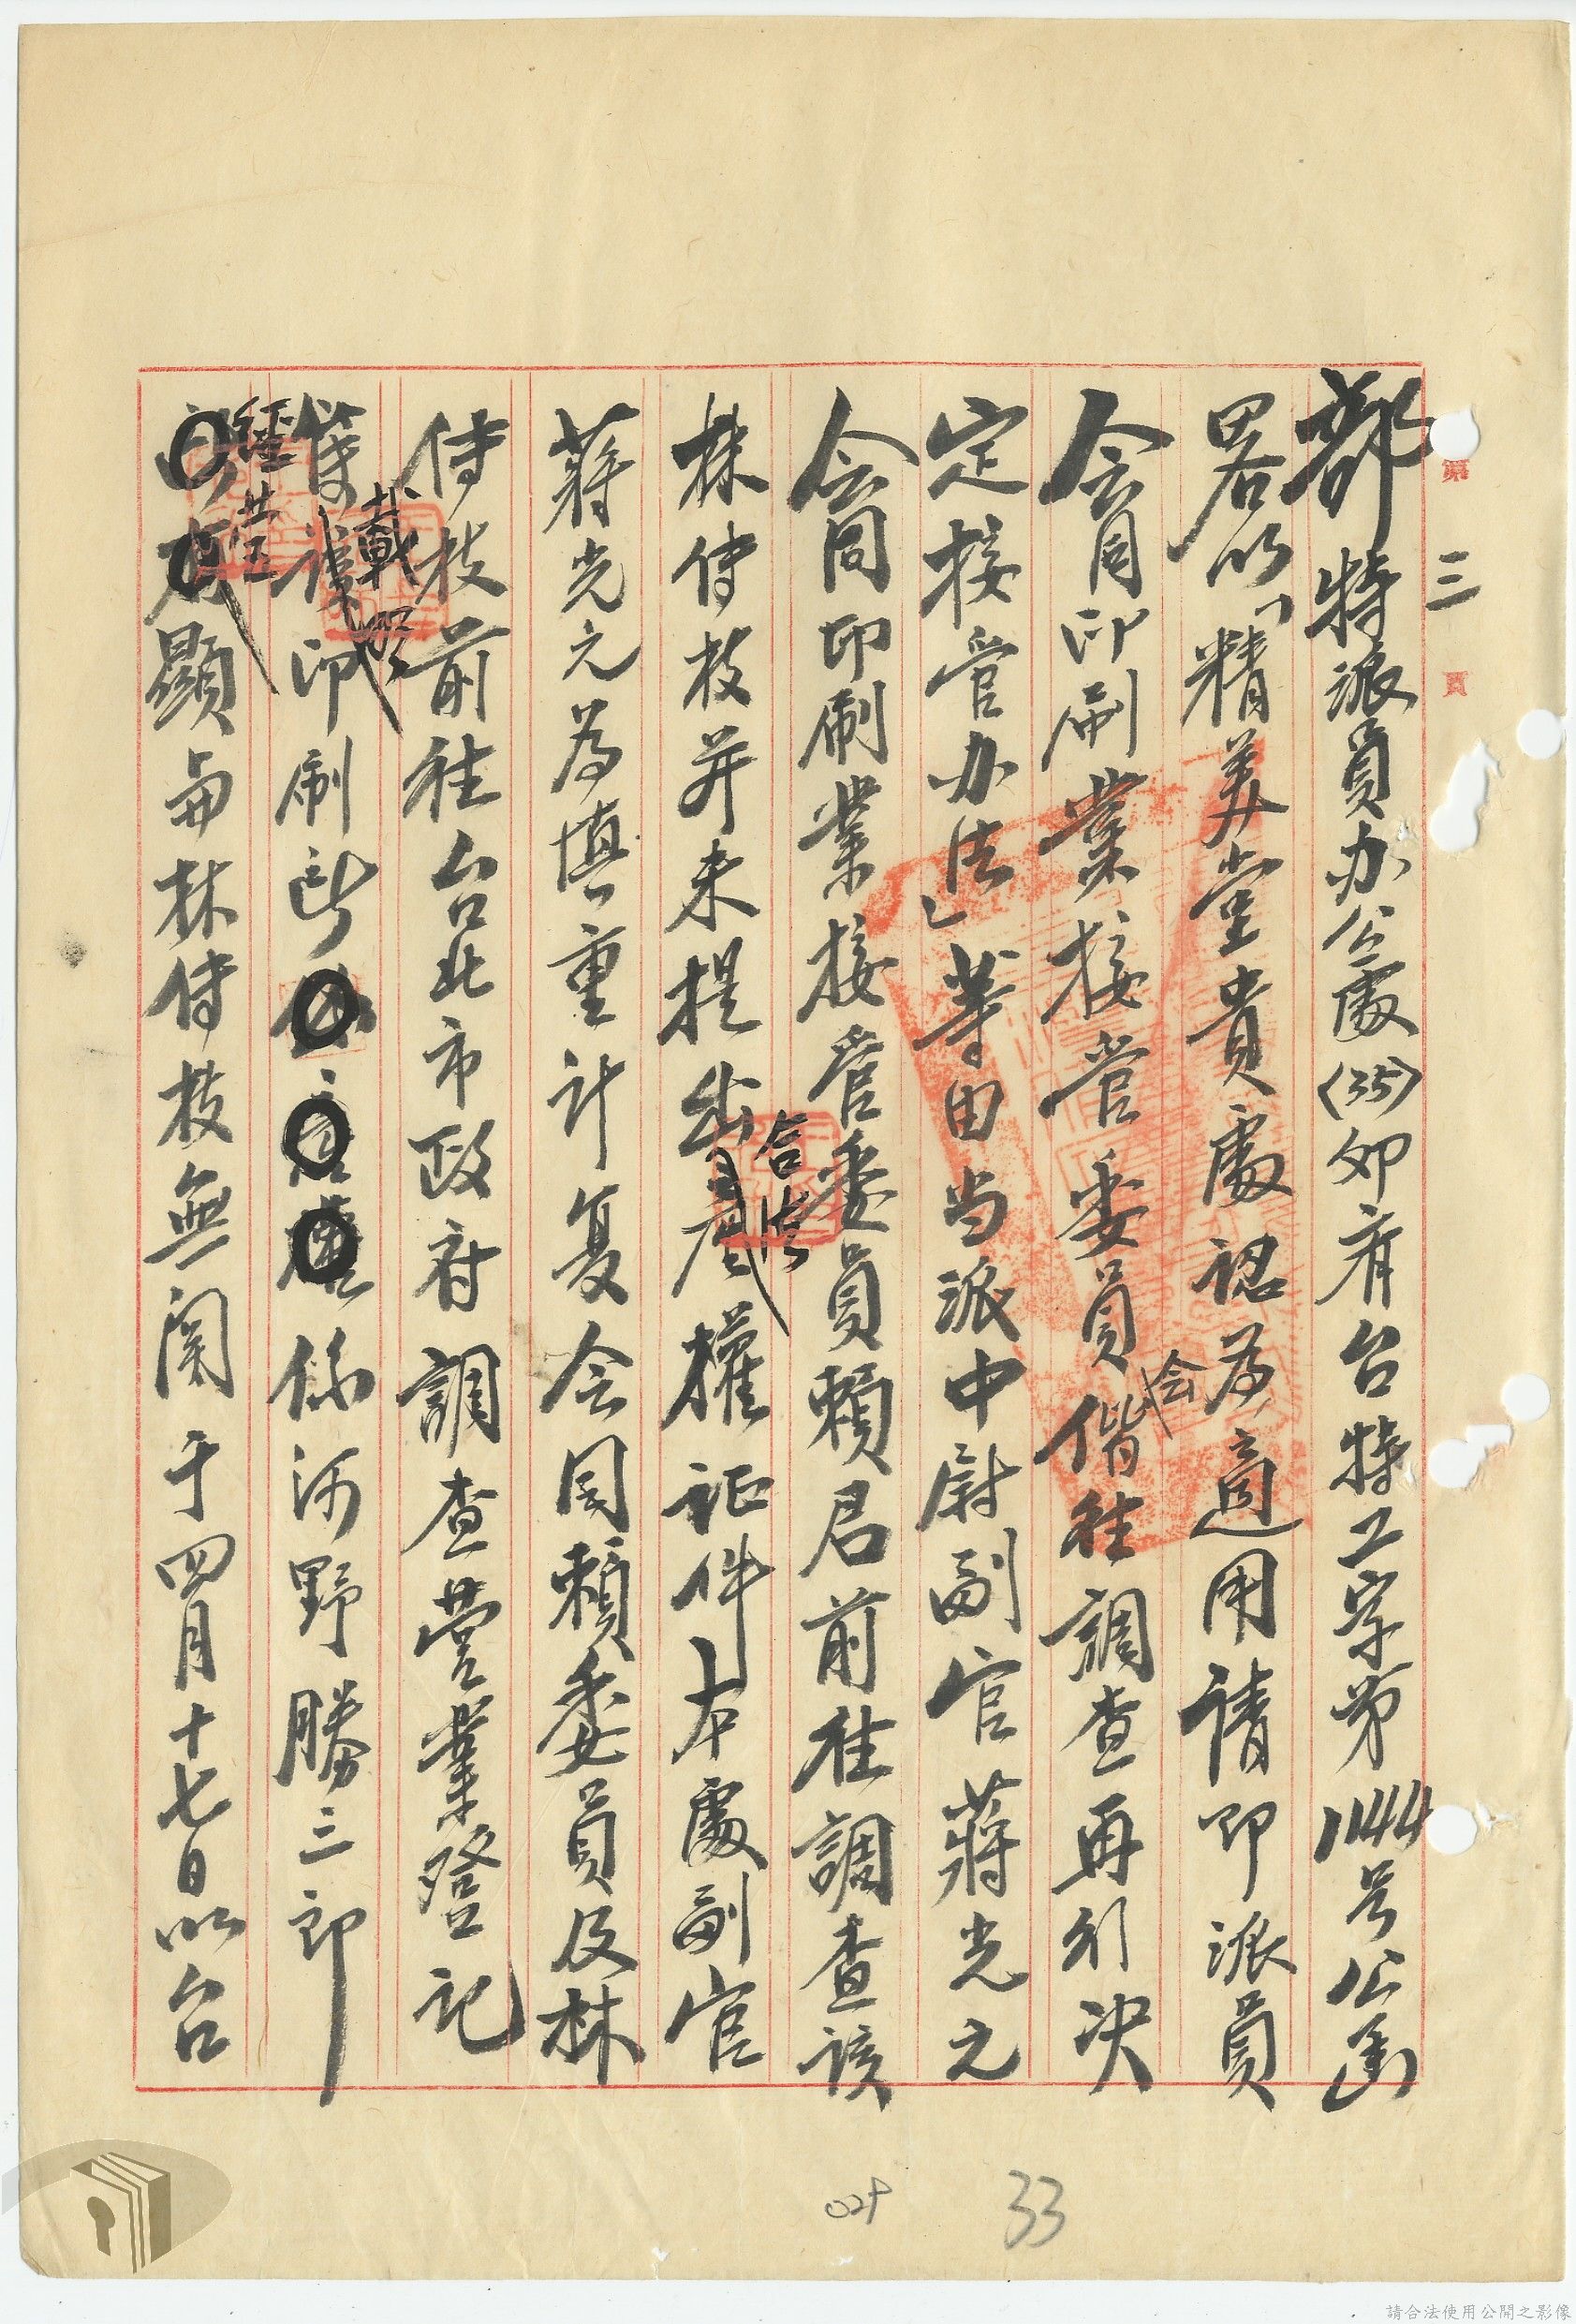 第三頁
部特派員办公處(35)卯有台特工字第1144号公函
畧以「精美堂貴處認為適用請即派員
会同印刷業接管委員会偕往調查再行决
定接管办法」等由当派中尉副官蔣光元
会同印刷業接管委員賴君前往調查該
林侍枝并未提出合法權証件本處副官
蔣光元為慎重計复会同賴委員及林
侍枝前往台北市政府調查营業登記
簿載明印刷所係河野勝三郎
經营顯與林侍枝無関于四月十七日以台
029
33
請合法使用公開之影像